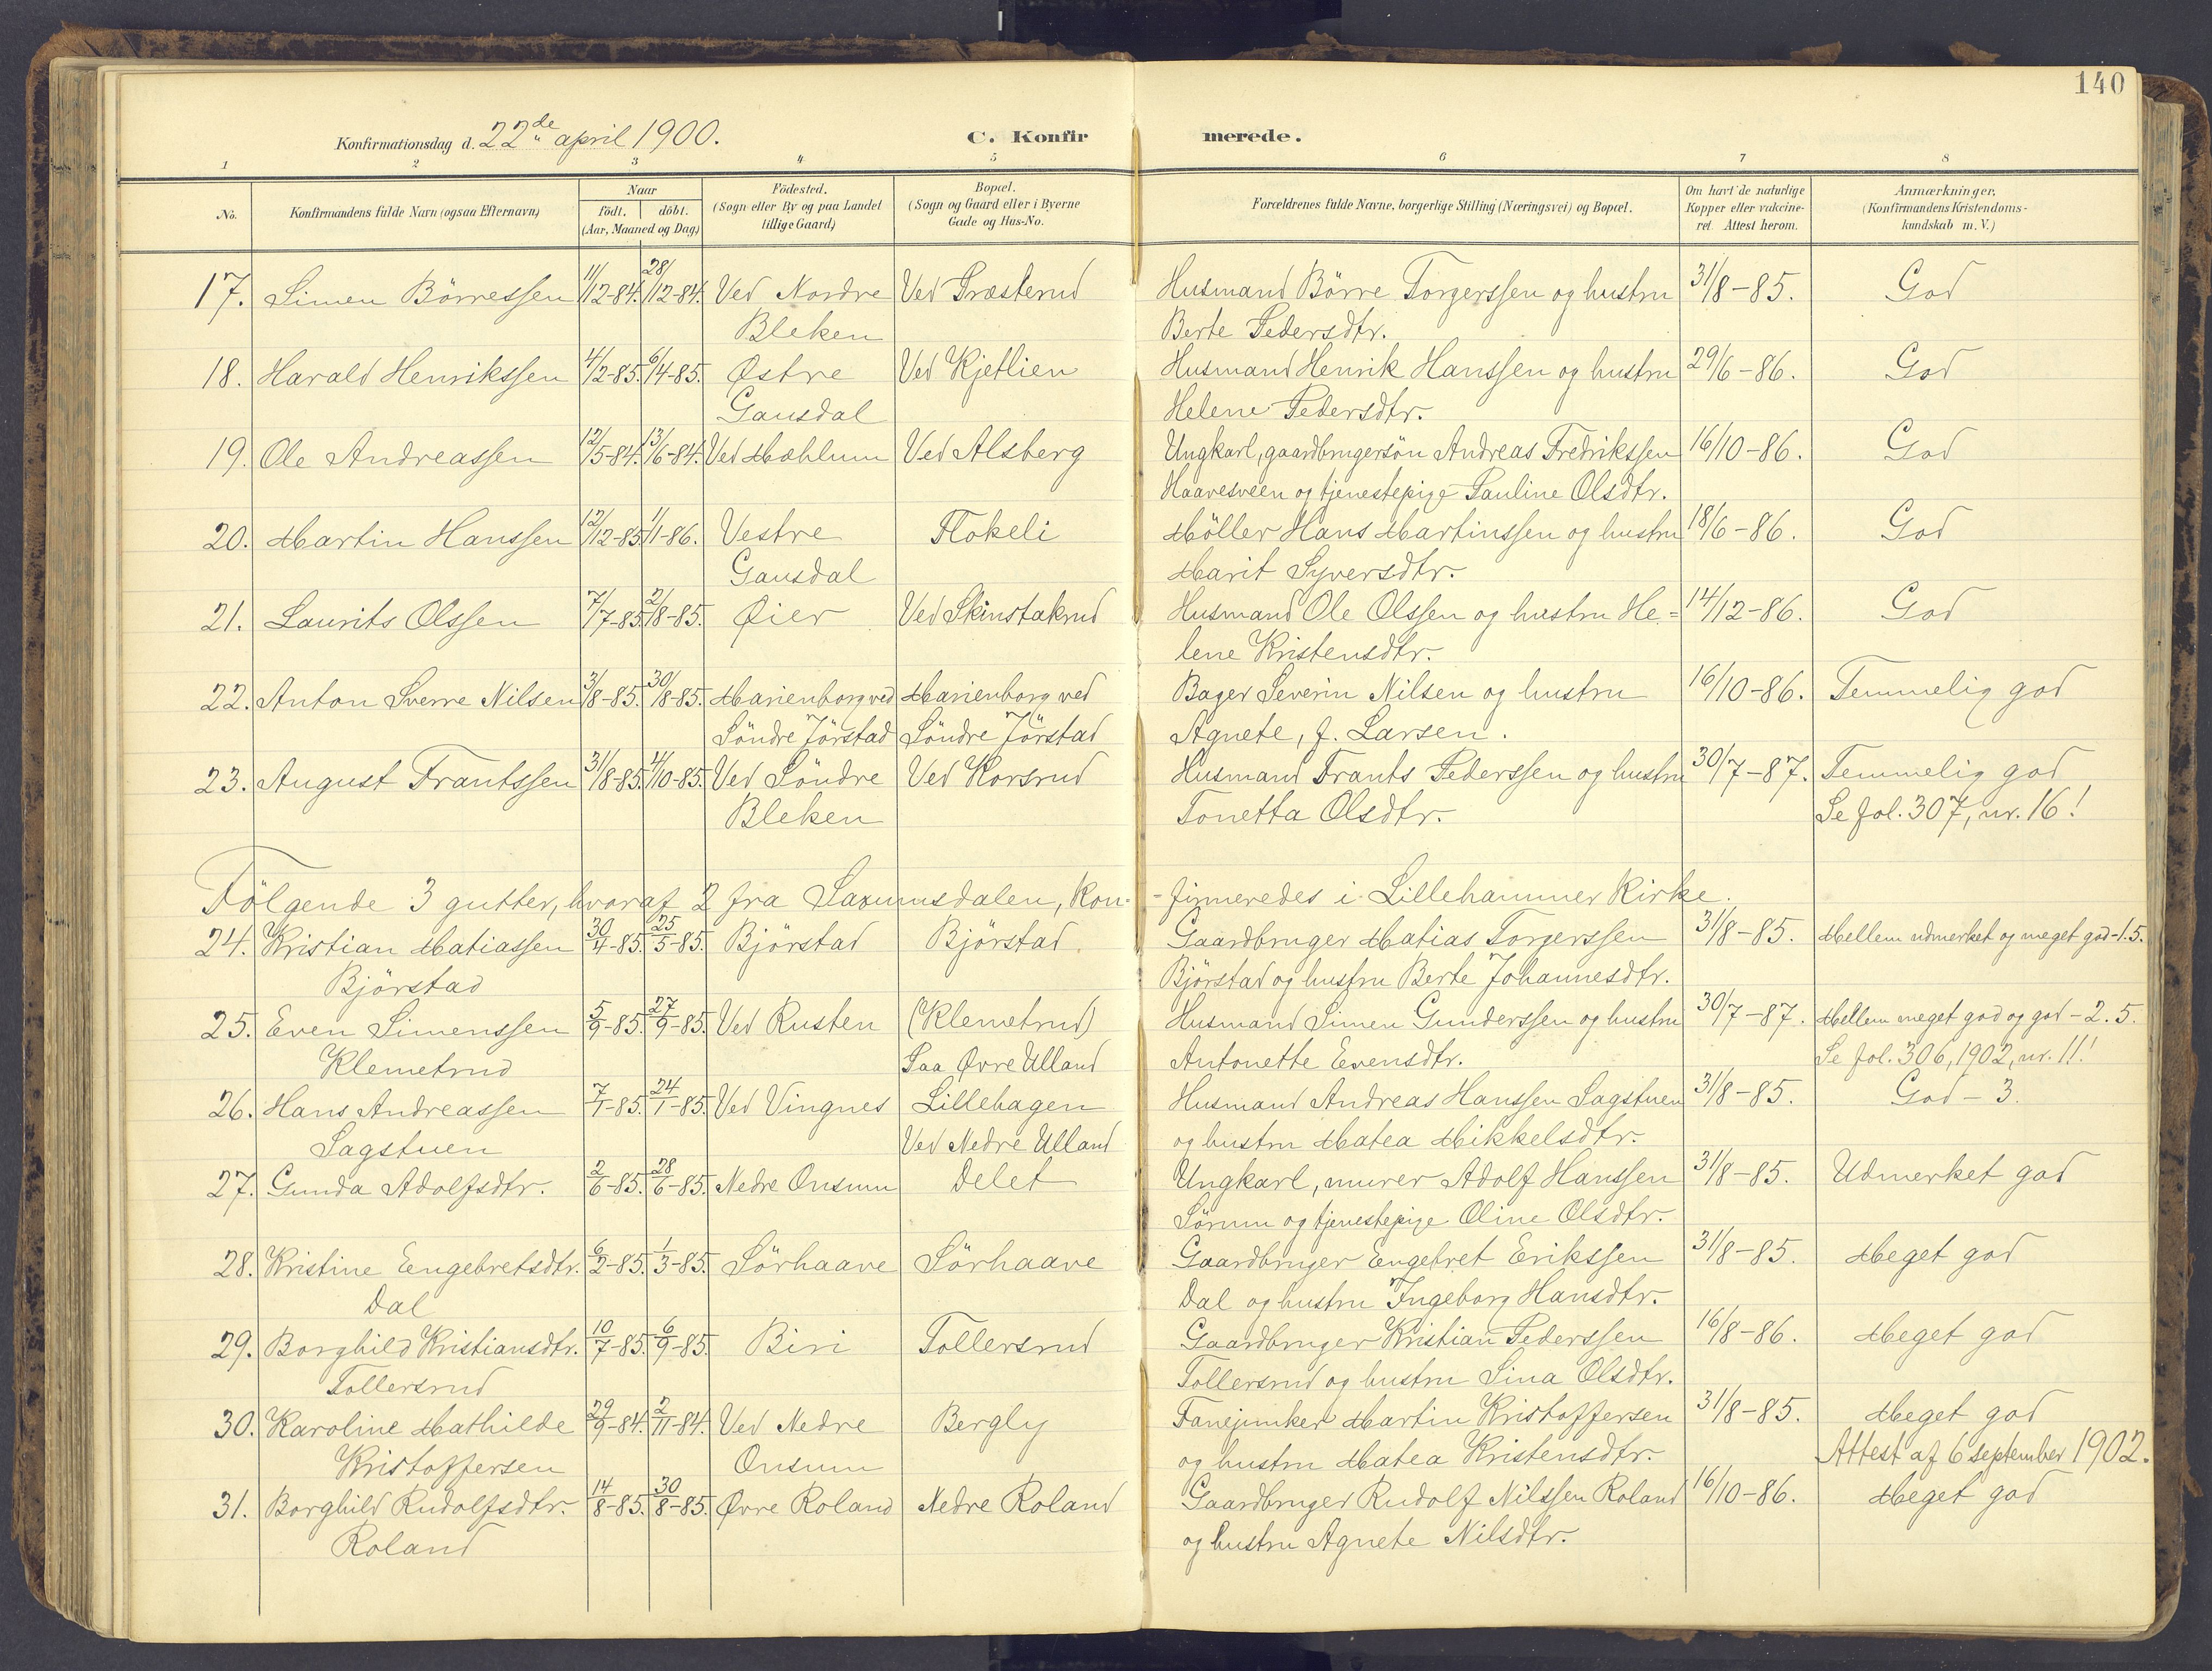 140
Konfirmationsdag d. 22de april 1900.
C. Konfirmerede.
1 2 3 4 5 6 7 8
No. Konfirmandens fulde Navn (ogsaa Efternavn) Naar födt. döbt. (Aar, Maaned og Dag) Födested. (Sogn eller By og paa Landet tillige Gaard) Bopæl. (Sogn og Gaard eller i Byerne Gade og Hus-No. Forældrenes fulde Navne, borgerlige Stilling (Næringsvei) og Bopæl. Om havt de naturlige Kopper eller vakcineret. Attest herom. Anmærkninger, (Konfirmandens Kristendomskundskab m. V.)
17. Simen Börressen 11/12-84. 28/12-84. Ved Nordre Ved Præsterud Husmand Börre Torgerssen og hustru 31/8-85. God
Bleken Berte Pedersdtr.
18. Harald Henrikssen 4/2-85. 6/4-85. Østre Ved Kjetlien Husmand Henrik Hanssen og hustru 29/6-86. God
Gausdal Helene Pedersdtr.
19. Ole Andreassen 12/5-84. 13/6-84. Ved Mæhlum Ved Alsberg Ungkarl, gaardbrugersön Andreas Fredrikssen 16/10-86. God
Haavesveen og tjenestepige Pauline Olsdtr.
20. Martin Hanssen 12/12-85. 1/1-86. Vestre Flokeli Möller Hans Martinssen og hustru 18/6-86. God
Gausdal Marit Syversdtr.
21. Laurits Olssen 7/7-85. 2/8-85. Øier Ved Skinstakrud Husmand Ole Olssen og hustru He= 14/12-86. God
lene Kristensdtr.
22. Anton Sverre Nilsen 3/8-85. 30/8-85. Marienborg ved Marienborg ved Bager Severin Nilsen og hustru 16/10-86. Temmelig god
Söndre Jörstad Söndre Jörstad Agnete, f. Larsen.
23. August Frantssen 31/8-85. 4/10-85. Ved Söndre Ved Korsrud Husmand Frants Pederssen og hustru 30/7-87. Temmelig god
Bleken Tonetta Olsdtr. Se fol. 307, nr. 16!
Fölgende 3 gutter, hvoraf 2 fra Saxumsdalen, kon- -firmeredes i Lillehammer Kirke.
24. Kristian Matiassen 30/4-85. 25/5-85. Björstad Björstad. Gaardbruger Matias Torgerssen 31/8-85. Mellem udmerket og meget god-1.5.
Björstad Björstad og hustru Berte Johannesdtr.
25. Even Simenssen 5/9-85. 27/9-85. Ved Rusten (Klemetrud) Husmand Simen Gunderssen og hustru 30/7-87. Mellem meget god og god - 2.5.
Klemetrud Paa Øvre Ulland Antonette Evensdtr. Se fol. 306, 1902, nr. 11!
26. Hans Andreassen 7/1-85. 24/1-85. Ved Vingnes Lillehagen Husmand Andreas Hanssen Sagstuen 31/8-85. God - 3.
Sagstuen Ved Nedre Ulland og hustru Matea Mikkelsdtr.
27. Gunda Adolfsdtr. 2/6-85. 28/6-85. Nedre Onsum Delet Ungkarl, murer Adolf Hanssen 31/8-85. Udmerket god
Sörum og tjenestepige Oline Olsdtr.
28. Kristine Eengebretsdtr. 6/2-85. 1/3-85. Sörhaave Sörhaave Gaardbruger Engebret Erikssen 31/8-85. Meget god
Dal Dal og hustru Ingeborg Hansdtr.
29. Borghild Kristiansdtr. 10/7-85. 6/9-85. Biri Tollersrud Gaardbruger Kristian Pederssen 16/8-86. Meget god
Tollersrud Tollersrud og hustru Lina Olsdtr.
30. Karoline Mathilde 29/9-84. 2/11-84. Ved Nedre Bergly Fanejunker Martin Kristoffersen 31/8-85. Meget god
Kristoffersen Onsum og hustru Matea Kristensdtr. Attest af 6 september 1902.
31. Borghild Rudolfsdtr. 14/8-85. 30/8-85. Øvre Roland Nedre Roland Gaardbruger Rudolf Nilssen Roland 16/10-86. Meget god
Roland og hustru Agnete Nilsdtr.